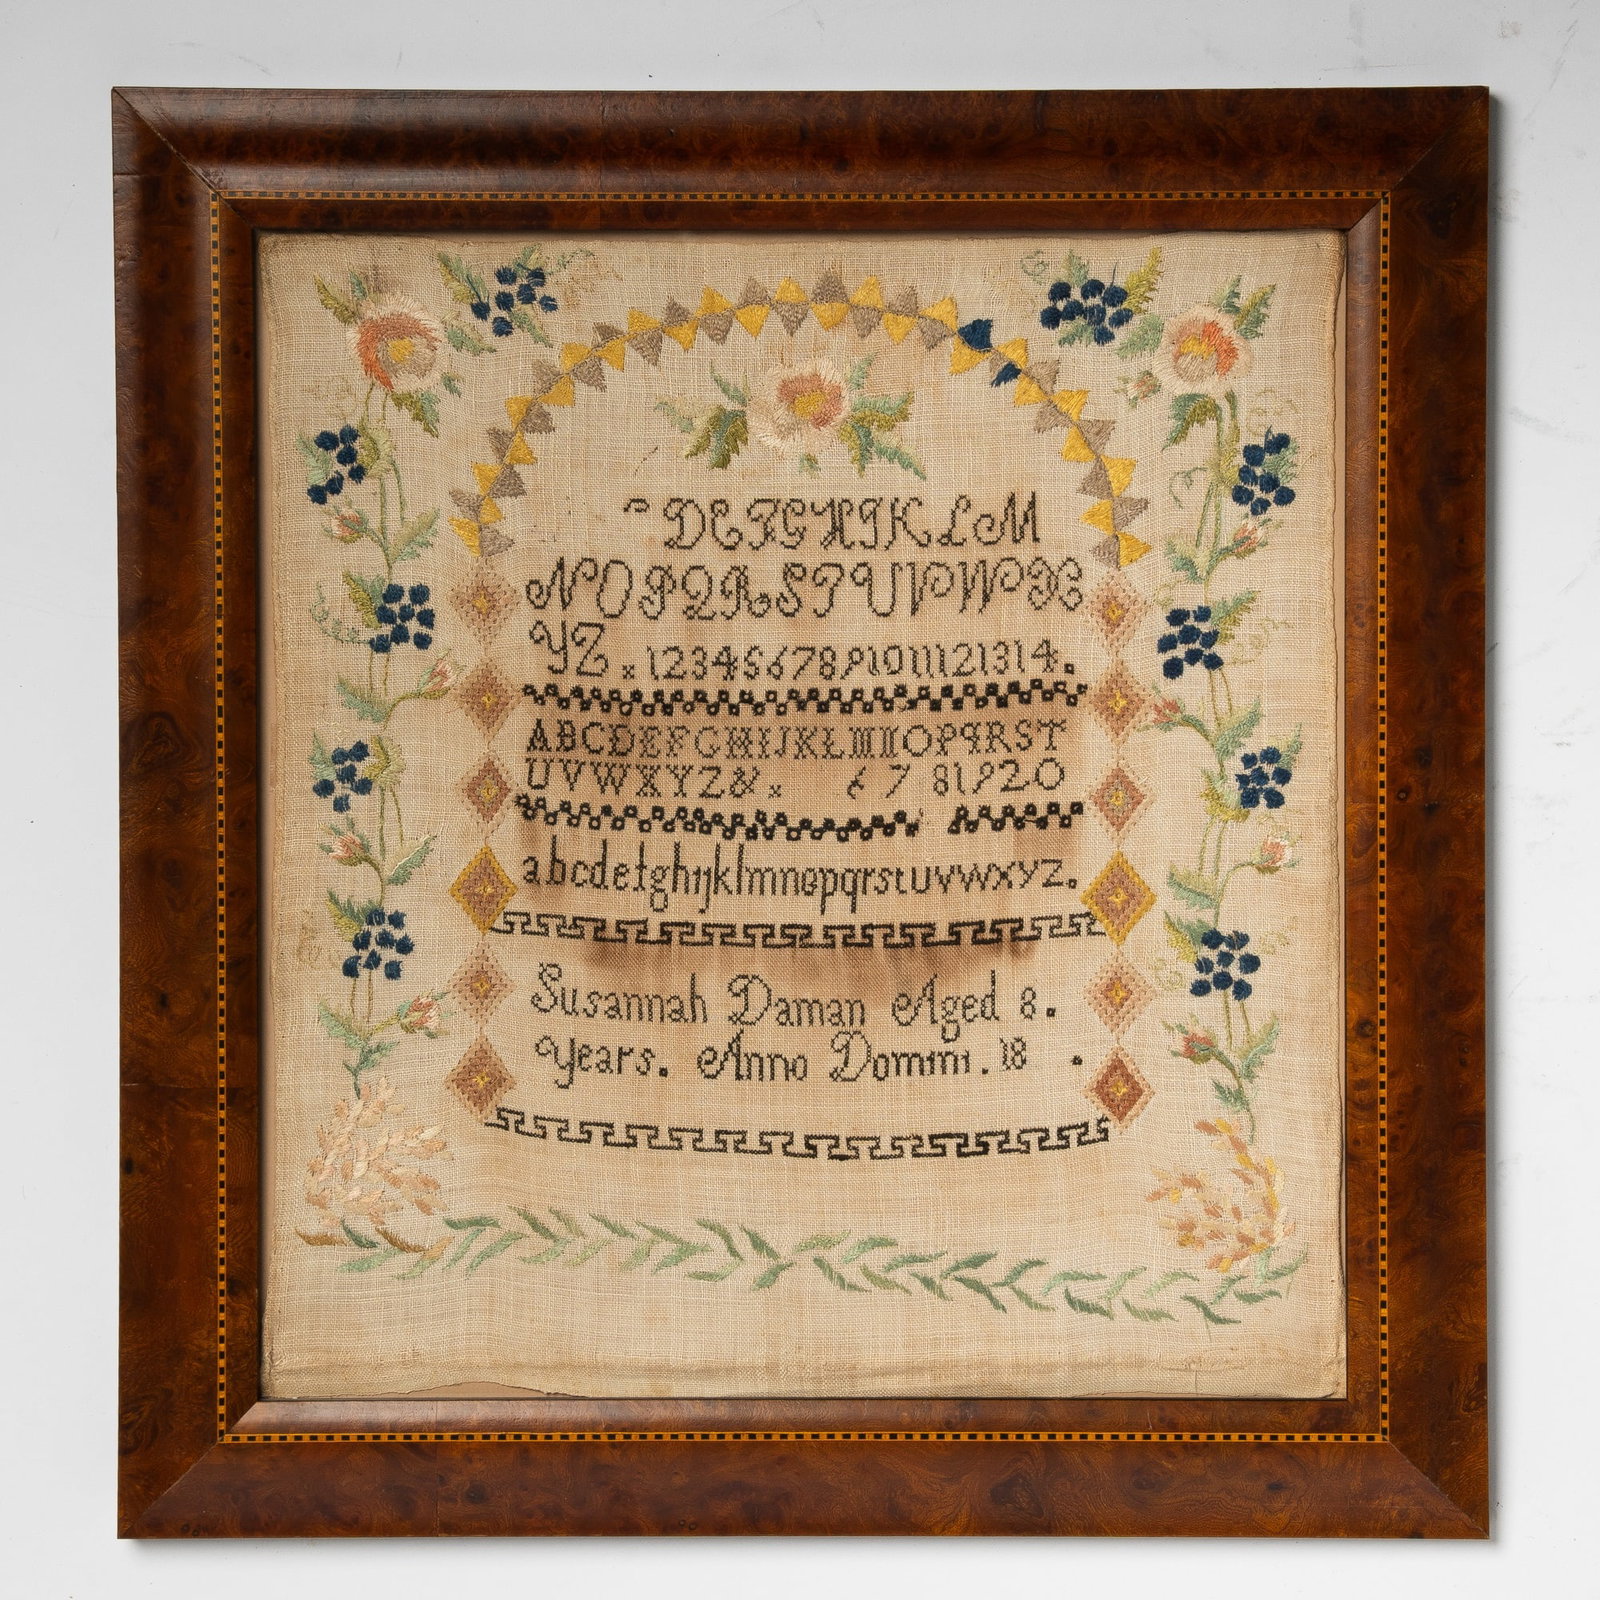 D E F G H I K L M
N O P Q R S T U V W X
Y Z x 1 2 3 4 5 6 7 8 9 10 11 12 13 14.
A B C D E F G H I J K L M N O P Q R S T
U V W X Y Z & x 6 7 8 1 9 2 0
a b c d e f g h i j k l m n o p q r s t u v w x y z.
Susannah Daman Aged 8.
years. Anno Domini. 18 .